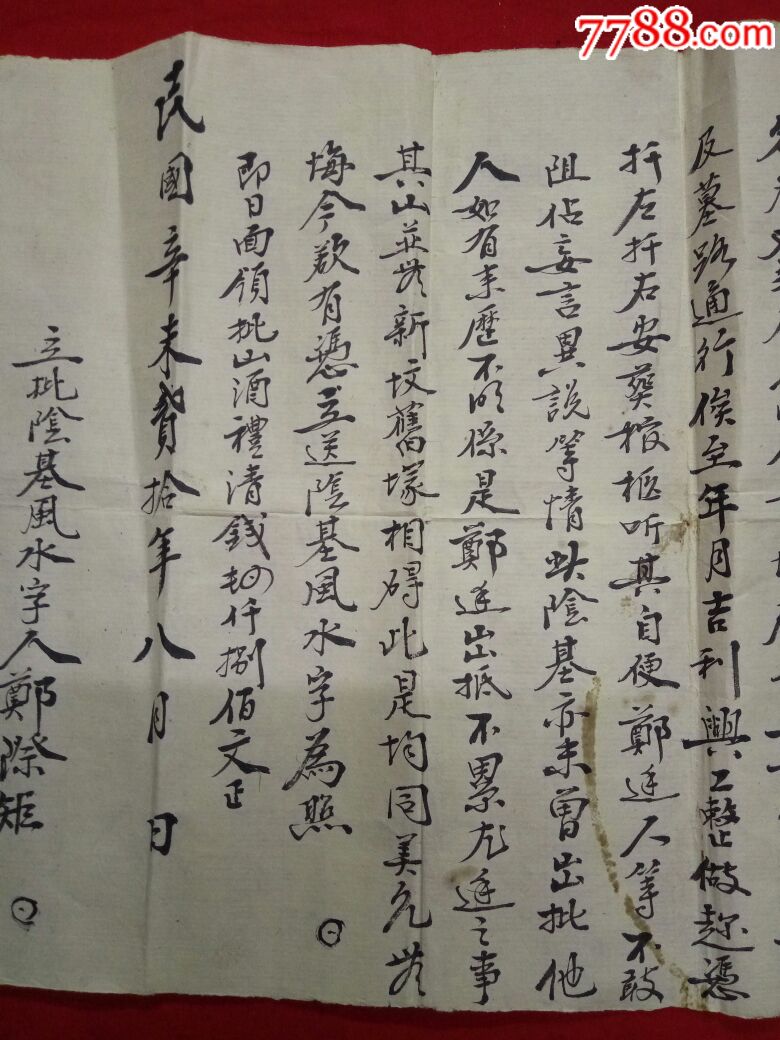 7788.com
及墓路通行俟至年月吉利興工整做起憑
扦左扦右安葬棺柩听其自便鄭逢人等不敢
阻佔妄言異説等情此陰基亦未曾出批他
人如有来歷不明係是鄭逢出抵不累尤逢之事
其山並無新坟舊塚相碍此是均同美允無
悔今欲有憑立送陰基風水字為照
即日面領批山酒禮清錢仟捌佰文正
民國辛未貳拾年八月日
立批陰基風水字人鄭際矩